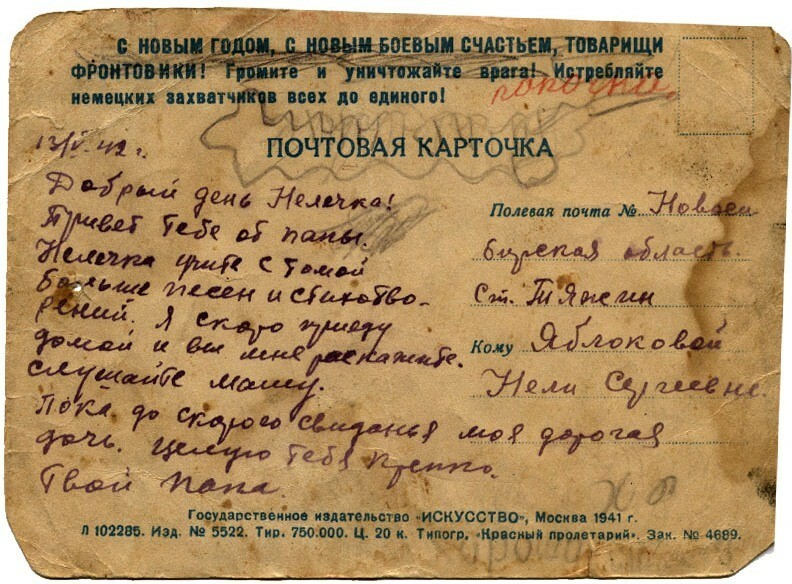 С НОВЫМ ГОДОМ, С НОВЫМ БОЕВЫМ СЧАСТЬЕМ, ТОВАРИЩИ
ФРОНТОВИКИ! Громите и уничтожайте врага! Истребляйте
немецких захватчиков всех до единого!
ПОЧТОВАЯ КАРТОЧКА
13/V. 42 г.
Добрый день Нелечка!
Привет тебе от папы.
Нелечка учите с Томой
больше песен и стихотво-
рений. Я скоро приеду
домой и вы мне раскажите.
Слушайте маму.
Пока до скорого свиданья моя дорогая
дочь. Целую тебя крепко.
Твой папа.
Полевая почта № Новоси
бирская область.
Ст. Тяжин
Кому Яблоковой
Нели Сергеевне.
Государственное издательство «ИСКУССТВО», Москва 1941 г.
Л 102285. Изд. № 5522. Тир. 750.000. Ц. 20 к. Типогр. «Красный пролетарий». Зак. № 4689.